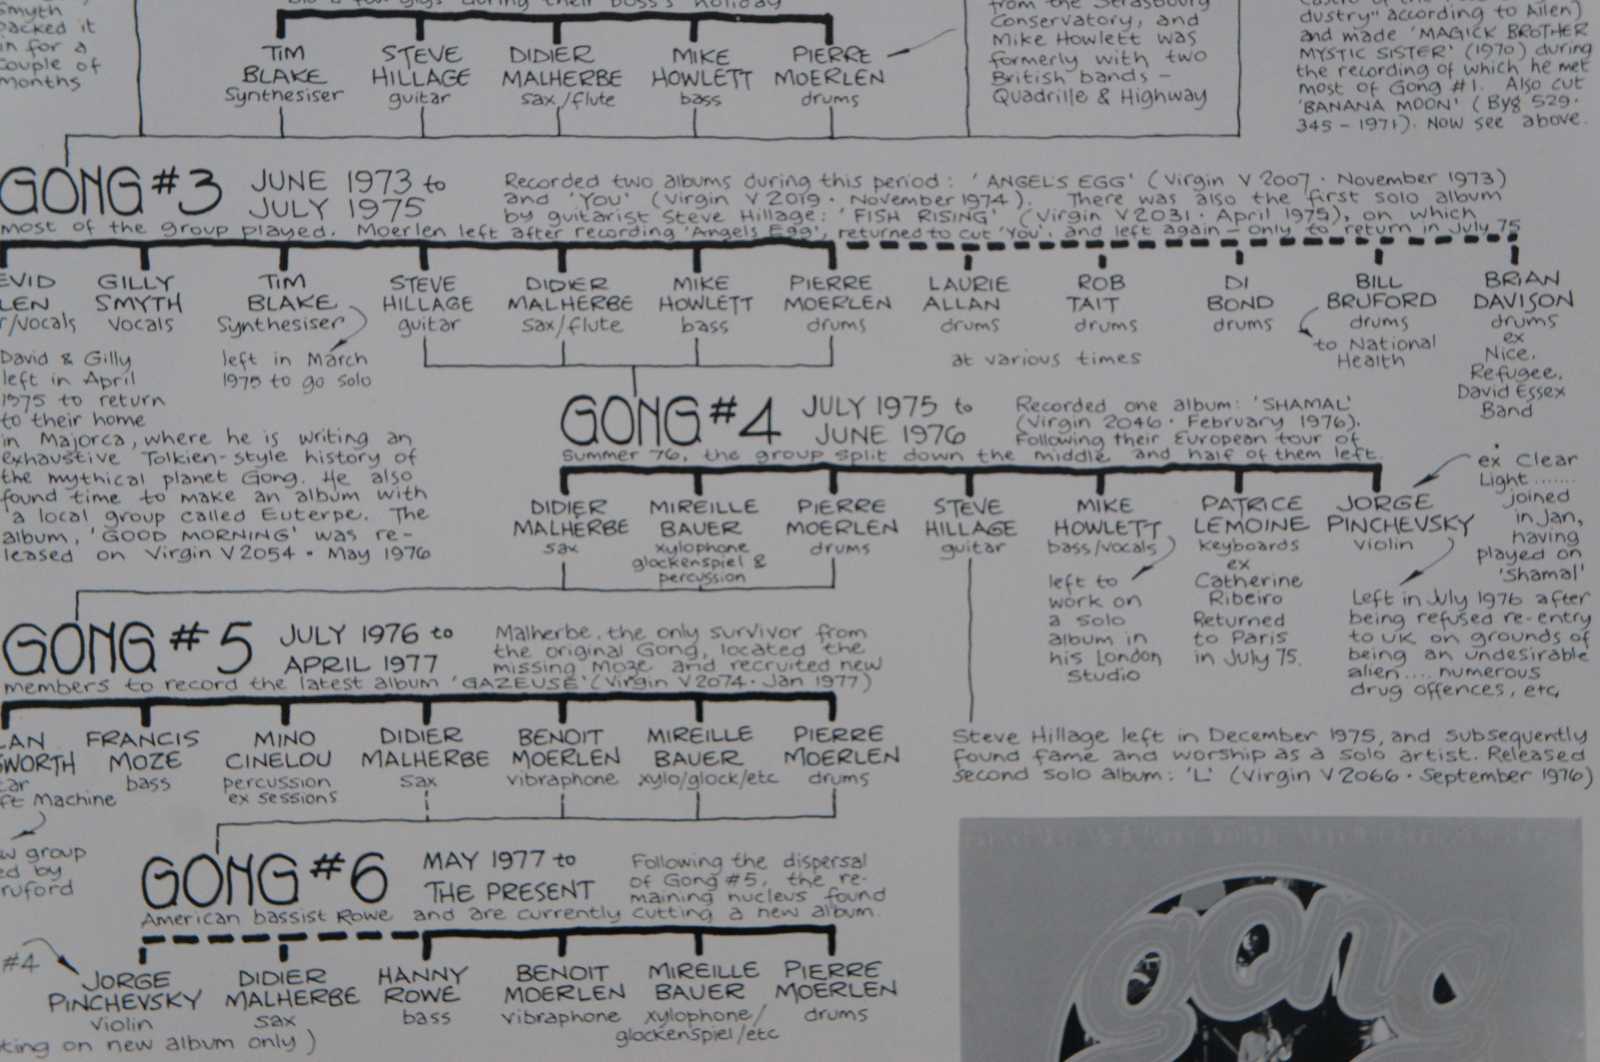 Smyth
packed it
in for a
couple of
months
TIM BLAKE
Synthesiser
STEVE HILLAGE
guitar
DIDIER MALHERBE
sax/flute
MIKE HOWLETT
bass
PIERRE MOERLEN
drums
from the Strasbourg
Conservatory, and
Mike Howlett was
formerly with two
British bands –
Quadrille & Highway
dustry" according to Allen)
and made 'MAGICK BROTHER
MYSTIC SISTER' (1970) during
the recording of which he met
most of Gong #1. Also cut
'BANANA MOON' (Byg 529·
345 – 1971). Now see above.
GONG #3
JUNE 1973 to
JULY 1975
Recorded two albums during this period: 'ANGEL'S EGG' (Virgin V 2007 · November 1973)
and 'YOU' (Virgin V 2019 · November 1974). There was also the first solo album
by guitarist Steve Hillage: 'FISH RISING' (Virgin V2031 · April 1975), on which
most of the group played. Moerlen left after recording 'Angels Egg', returned to cut 'You', and left again – only to return in July 75
EVID
LEN
r/vocals
GILLY
SMYTH
vocals
TIM
BLAKE
Synthesiser
STEVE
HILLAGE
guitar
DIDIER
MALHERBE
sax/flute
MIKE
HOWLETT
bass
PIERRE
MOERLEN
drums
LAURIE
ALLAN
drums
ROB
TAIT
drums
DI
BOND
drums
BILL
BRUFORD
drums
to National
Health
BRIAN
DAVISON
drums
ex
Nice,
Refugee,
David Essex
Band
at various times
left in March
1975 to go solo
David & Gilly
left in April
1975 to return
to their home
in Majorca, where he is writing an
exhaustive Tolkien-style history of
the mythical planet Gong. He also
found time to make an album with
a local group called Euterpe. The
album, 'GOOD MORNING' was re-
leased on Virgin V2054 · May 1976
GONG #4
JULY 1975 to
JUNE 1976
Recorded one album: 'SHAMAL'
(Virgin 2046 · February 1976).
Following their European tour of
Summer 76, the group split down the middle and half of them left.
DIDIER
MALHERBE
sax
MIREILLE
BAUER
xylophone
glockenspiel &
percussion
PIERRE
MOERLEN
drums
STEVE
HILLAGE
guitar
MIKE
HOWLETT
bass/vocals
left to
work on
a solo
album in
his London
Studio
PATRICE
LEMOINE
keyboards
ex
Catherine
Ribeiro
Returned
to Paris
in July 75.
JORGE
PINCHEVSKY
violin
ex Clear
Light .......
joined
in Jan,
having
played on
'Shamal'
Left in July 1976 after
being refused re-entry
to UK on grounds of
being an undesirable
alien.... numerous
drug offences, etc,
GONG #5
JULY 1976 to
APRIL 1977
Malherbe, the only survivor from
the original Gong, located the
missing Moze and recruited new
members to record the latest album 'GAZEUSE' (Virgin V2074 · Jan 1977)
LAN
SWORTH
tar
ft Machine
FRANCIS
MOZE
bass
MINO
CINELOU
percussion
ex sessions
DIDIER
MALHERBE
sax
BENOIT
MOERLEN
vibraphone
MIREILLE
BAUER
xylo/glock/etc
PIERRE
MOERLEN
drums
Steve Hillage left in December 1975, and subsequently
found fame and worship as a solo artist. Released
second solo album: 'L' (Virgin V2066 · September 1976)
w group
ed by
ruford
GONG #6
MAY 1977 to
THE PRESENT
Following the dispersal
of Gong #5, the re-
maining nucleus found
American bassist Rowe and are currently cutting a new album.
#4
JORGE
PINCHEVSKY
violin
DIDIER
MALHERBE
sax
ting on new album only )
HANNY
ROWE
bass
BENOIT
MOERLEN
vibraphone
MIREILLE
BAUER
xylophone/
glockenspiel/etc
PIERRE
MOERLEN
drums
gong